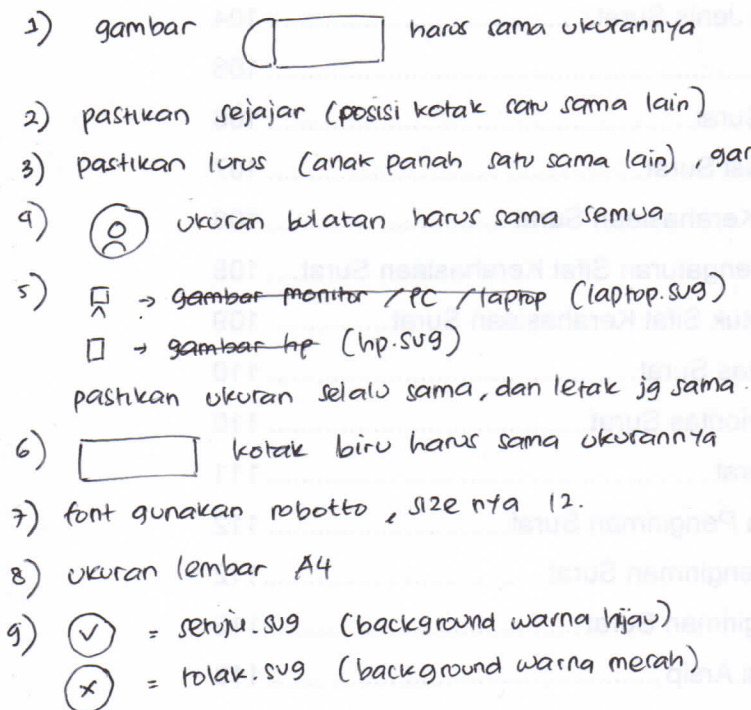 1) gambar harus sama ukurannya
2) pastikan sejajar (posisi kotak satu sama lain)
3) pastikan lurus (anak panah satu sama lain), gar
4) ukuran bulatan harus sama semua
5) → gambar monitor / PC / laptop (laptop.svg)
→ gambar hp (hp.svg)
pastikan ukuran selalu sama, dan letak jg sama
6) kotak biru harus sama ukurannya
7) font gunakan robotto, size nya 12.
8) ukuran lembar A4
9) = setuju.svg (background warna hijau)
= tolak.svg (background warna merah)